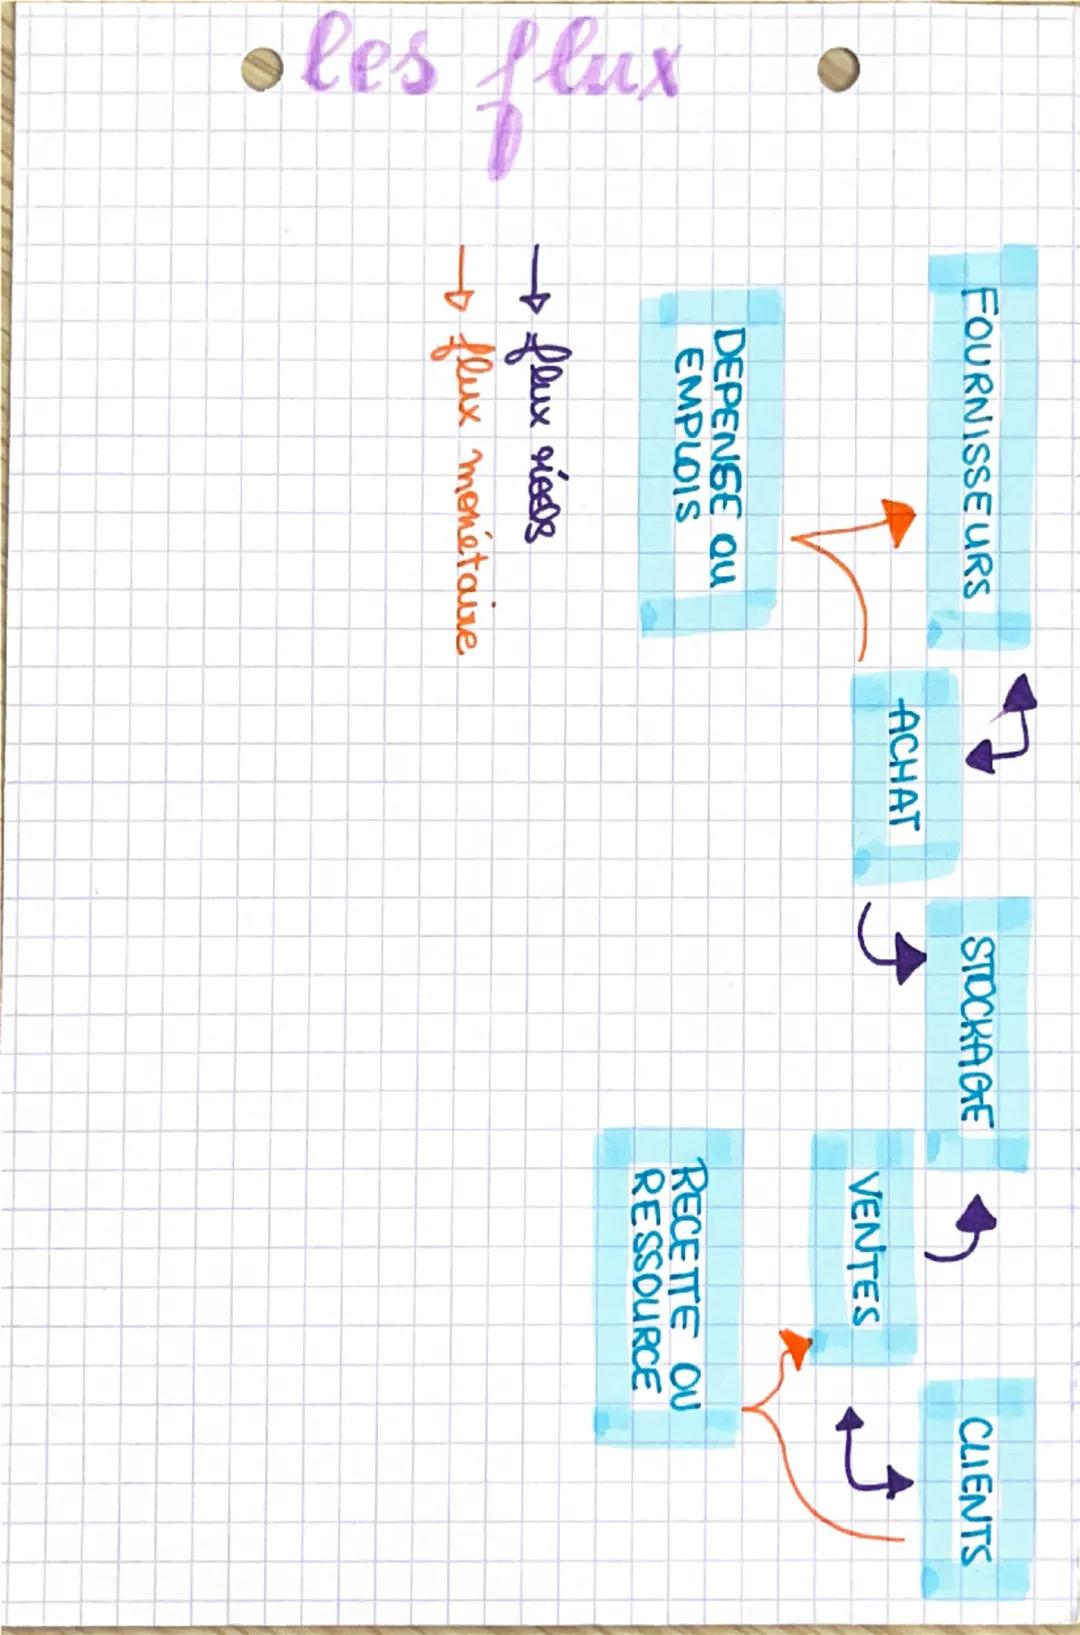 les flux
FOURNISSEURS
ACHAT
STOCKAGE
VENTES
CLIENTS
DEPENSE OU
EMPLOIS
RECETTE OU
RESSOURCE
flux réels
flux monétaire